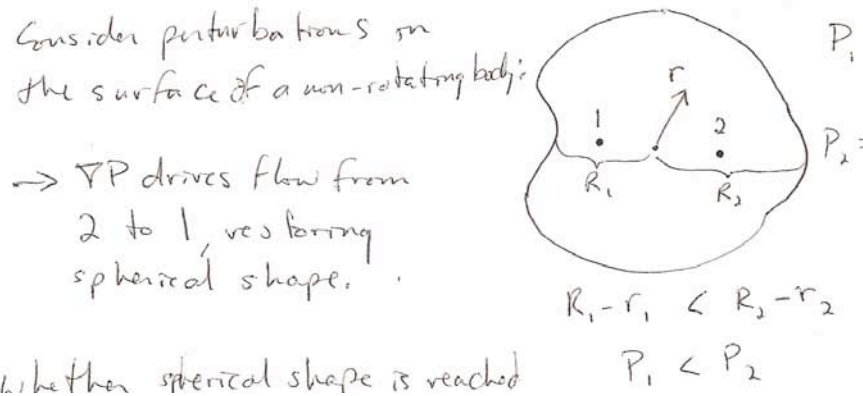 Consider perturbations in
the surface of a non-rotating body:
→ ∇P drives flow from
2 to 1, restoring
spherical shape.
Whether spherical shape is reached
r
1
2
R₁
R₂
P₁
P₂ =
R₁-r₁ < R₂-r₂
P₁ < P₂